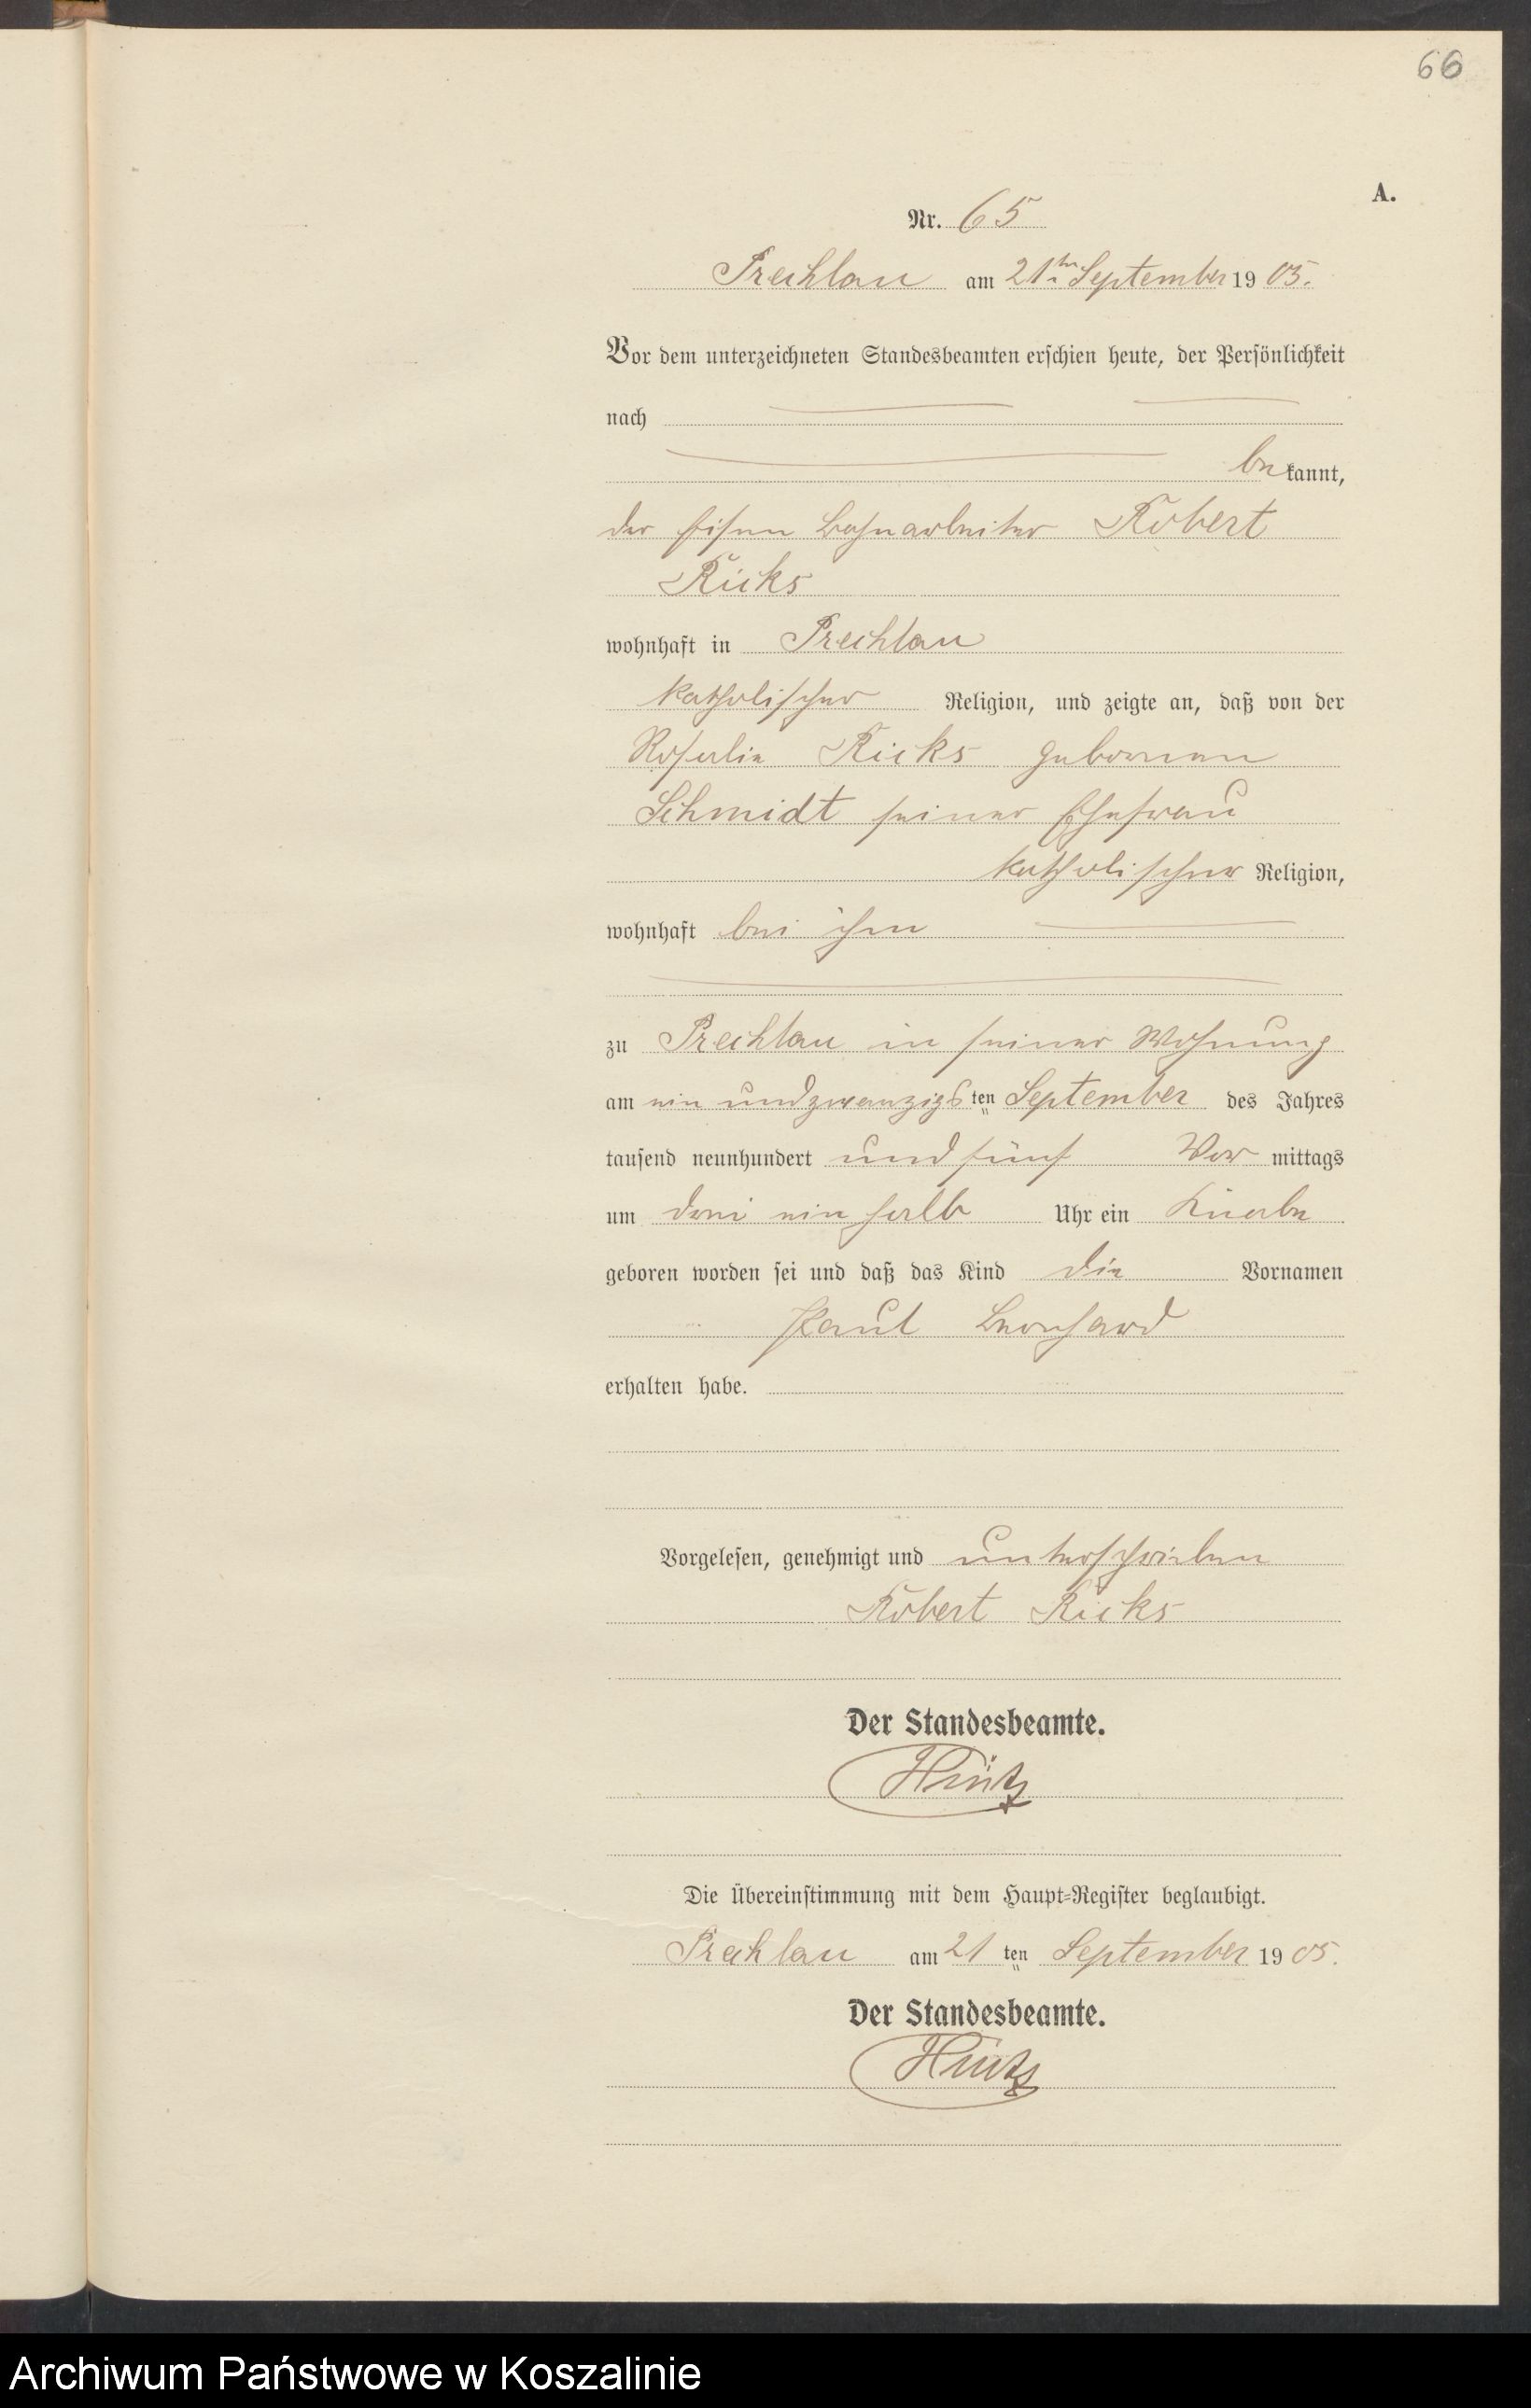 66
A.
Nr. 65
Prechlau am 21ten September 1905.
Vor dem unterzeichneten Standesbeamten erschien heute, der Persönlichkeit
nach
be kannt,
der Eisen bahnarbeiter Robert
Ricks
wohnhaft in Prechlau
katholischer Religion, und zeigte an, daß von der
Rosalie Ricks geborenen
Schmidt seiner Ehefrau
katholischer Religion,
wohnhaft bei ihm
zu Prechlau in seiner Wohnung
am ein und zwanzigsten September des Jahres
tausend neunhundert und fünf Vor mittags
um drei ein halb Uhr ein Knabe
geboren worden sei und daß das Kind die Vornamen
Paul Leonhard
erhalten habe.
Vorgelesen, genehmigt und unterschrieben
Robert Ricks
Der Standesbeamte.
Die Übereinstimmung mit dem Haupt-Register beglaubigt.
Prechlau am 21 ten September 1905.
Der Standesbeamte.
Archiwum Państwowe w Koszalinie